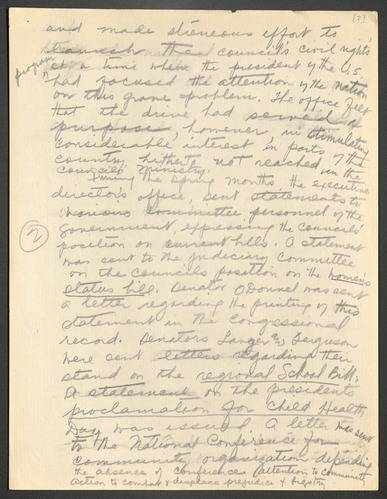 [2]
and made strenuous effort to
launch the council's civil rights
program
at a time when the president of the U.S.
had focused the attention of the nation
on this grave problem. The office felt
that the drive had served a
purpose, however, in stimulating
considerable interest in parts of the
country hitherto not reached in the
council's ministry.
During the spring months the executive
director's office, sent statements to
various committee personnel of the
Government, expressing the councils'
position on current bills. A statement
was sent to the judiciary Committee
on the councils position on the women's
status bill. Senator O'Donnel was sent
a letter regarding the printing of this
statement in the Congressional
record. Senators Langer & Ferguson
were sent letters regarding their
stand on the regional School Bill.
A statement on the presidents
proclamation for Child Health
Day was issued. A letter was sent
to the National Conference for
community organization
the absence of conference attention to community
action to combat & displace prejudice & bigotry
2